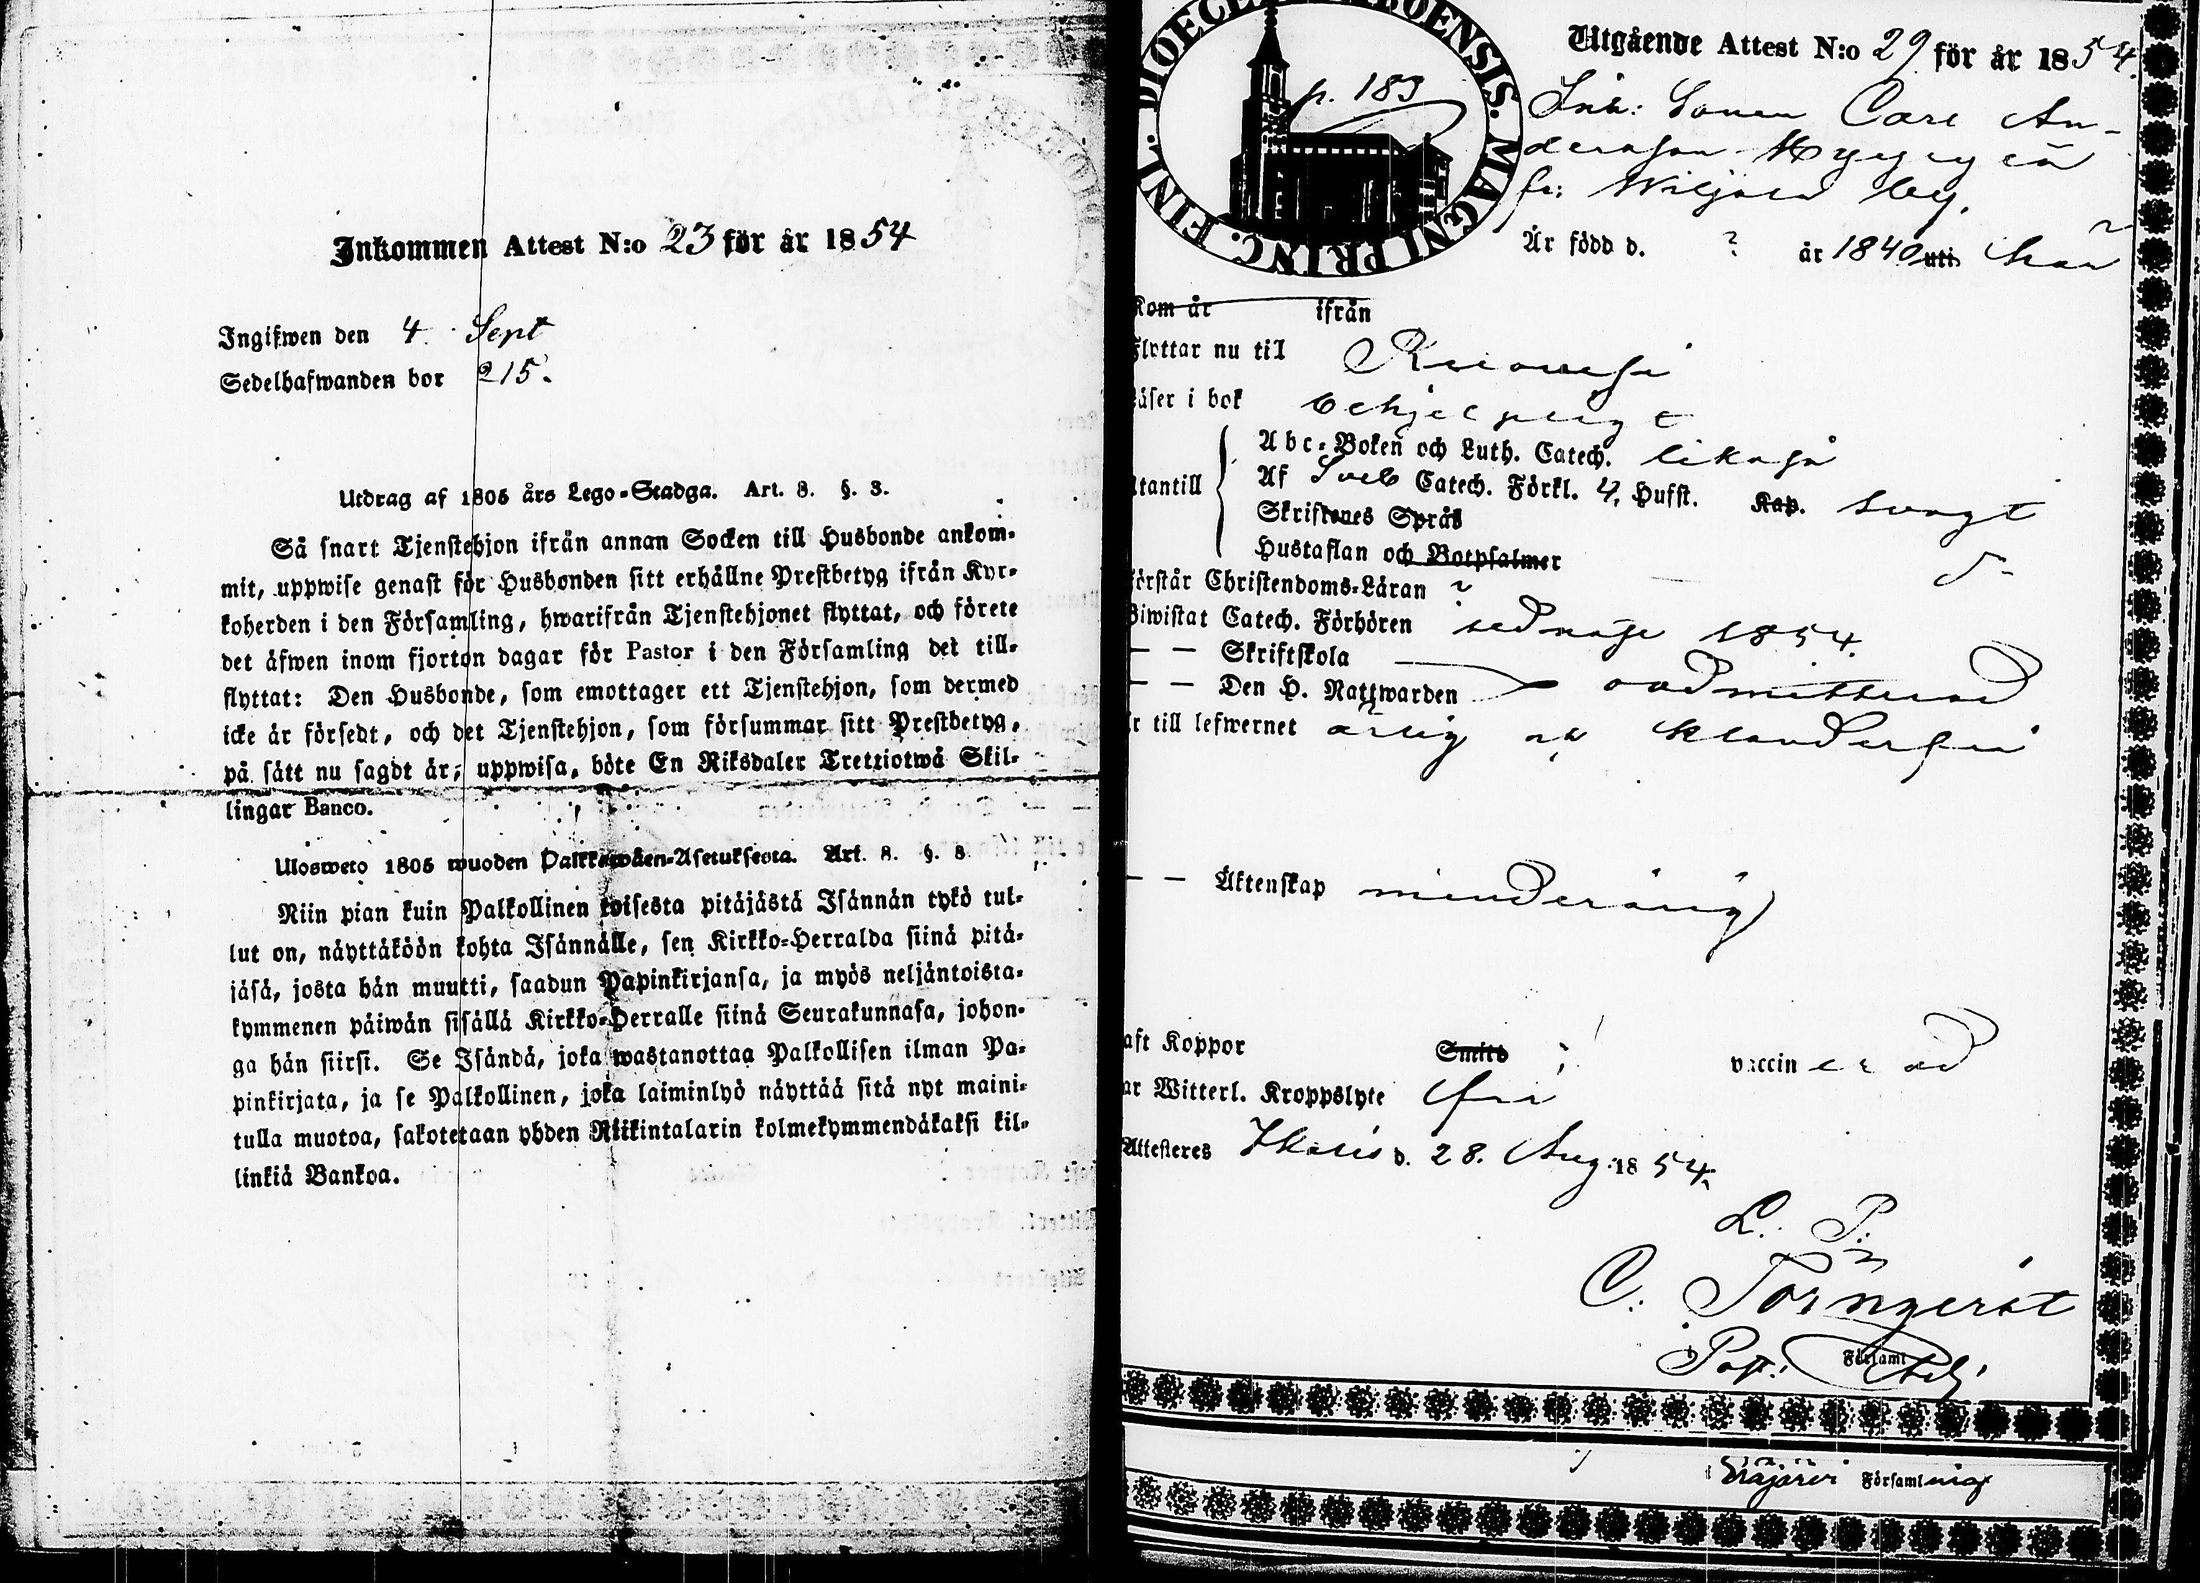 Inkommen Attest N:o 23 för år 1854
Ingifwen den 4. Sept
Sedelhafwanden bor 215.
Utdrag af 1805 års Lego-Stadga. Art. 8. §. 3.
Så snart Tjenstehjon ifrån annan Socken till Husbonde ankom-
mit, uppwise genast för Husbonden sitt erhållne Prestbetyg ifrån Kyr-
koherden i den Församling, hwarifrån Tjenstehjonet flyttat, och förete
det äfwen inom fjorton dagar för Pastor i den Församling det till-
flyttat: Den Husbonde, som emottager ett Tjenstehjon, som dermed
icke är försedt, och det Tjenstehjon, som försummar sitt Prestbetyg,
på sätt nu sagdt är, uppwisa, böte En Riksdaler Trettiotwå Skil-
lingar Banco.
Ulosweto 1805 wuoden Palkkawäen-Asetuksesta. Art. 8. §. 8.
Niin pian kuin Palkollinen toisesta pitäjästä Isännän tykö tul-
lut on, näyttäköön kohta Isännälle, sen Kirkko-Herralda siinä pitä-
jäsä, josta hän muutti, saadun Papinkirjansa, ja myös neljäntoista-
kymmenen päiwän sisällä Kirkko-Herralle siinä Seurakunnasa, johon-
ga hän siirsi. Se Isändä, joka wastanottaa Palkollisen ilman Pa-
pinkirjata, ja se Palkollinen, joka laiminlyö näyttää sitä nyt maini-
tulla muotoa, sakotetaan yhden Riikintalarin kolmekymmendäkaksi kil-
linkiä Bankoa.
FINL. DIOECE ABOENSIS. MAGNI PRINC.
p. 183
Utgående Attest N:o 29 för år 1854.
Inh: Sonen Carl An-
dersson
by.
Är född d. ? år 1840 uti
Kom år ifrån
Flyttar nu till
Läser i bok behjelpligt
Abc-Boken och Luth. Catech. likaså
Utantill Af Sveb Catech. Förkl. 4, Hufst. Kap. svagt
Skriftenes Språk
Hustaflan och Botpsalmer
Förstår Christendoms-Läran ?
Biwistat Catech. Förhören 1854.
— — Skriftskola
— — Den H. Nattwarden oadmitterad
Är till lefwernet ärlig och klanderfri
— — Äktenskap minderårig
aft Koppor Smitt vaccinerad
ar Witterl. Kroppslyte fri
Attesteres Ikalis d. 28. Aug. 1854.
L. P.
C. Törnqvist
Past: Församl
Församling